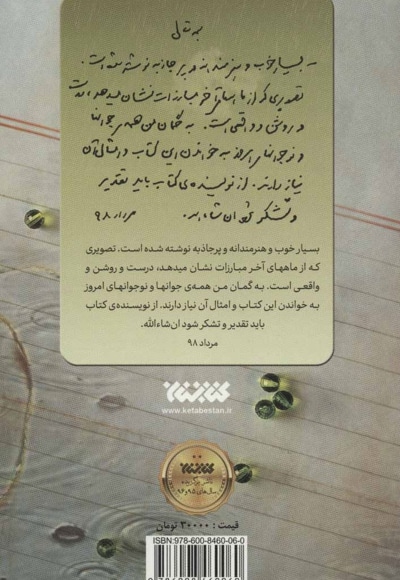 بسمه تعالی
- بسیار خوب و هنرمندانه و پرجاذبه نوشته شده است.
تصویری که از ماههای آخر مبارزات نشان میدهد، درست
و روشن و واقعی است. به گمان من همه‌ی جوانها
و نوجوانهای امروز به خواندن این کتاب و امثال آن
نیاز دارند. از نویسنده‌ی کتاب باید تقدیر
و تشکر شود ان شاءالله. مرداد ۹۸
بسیار خوب و هنرمندانه و پرجاذبه نوشته شده است. تصویری
که از ماههای آخر مبارزات نشان میدهد، درست و روشن و
واقعی است. به گمان من همه‌ی جوانها و نوجوانهای امروز
به خواندن این کتاب و امثال آن نیاز دارند. از نویسنده‌ی کتاب
باید تقدیر و تشکر شود ان‌شاءالله.
مرداد ۹۸
کتابستان
www.ketabestan.ir
کتابستان
ناشر برگزیده
سال‌های ۹۵ و ۹۶
قیمت : ۳۰۰۰۰ تومان
ISBN: 978-600-8460-06-0